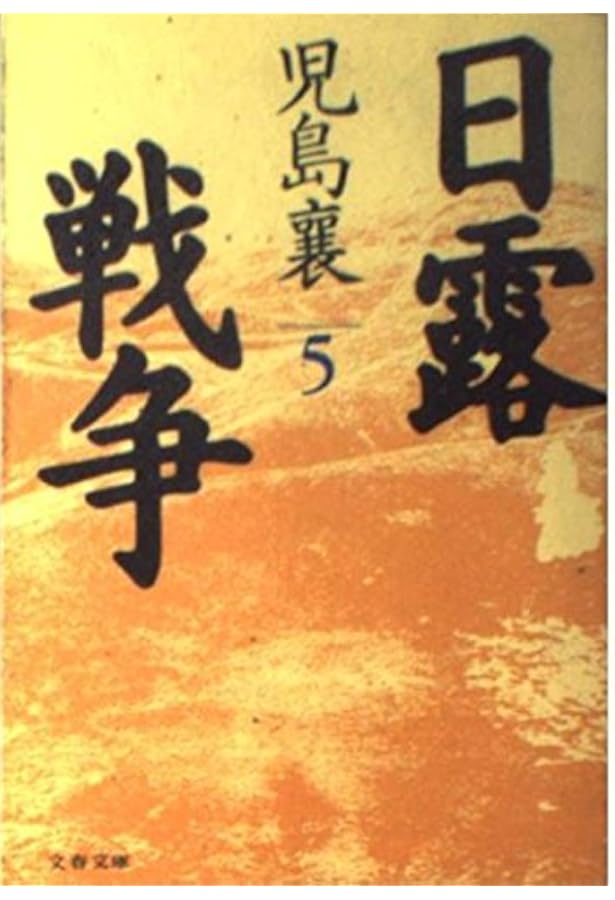 日露
戦争
児島襄
5
文春文庫